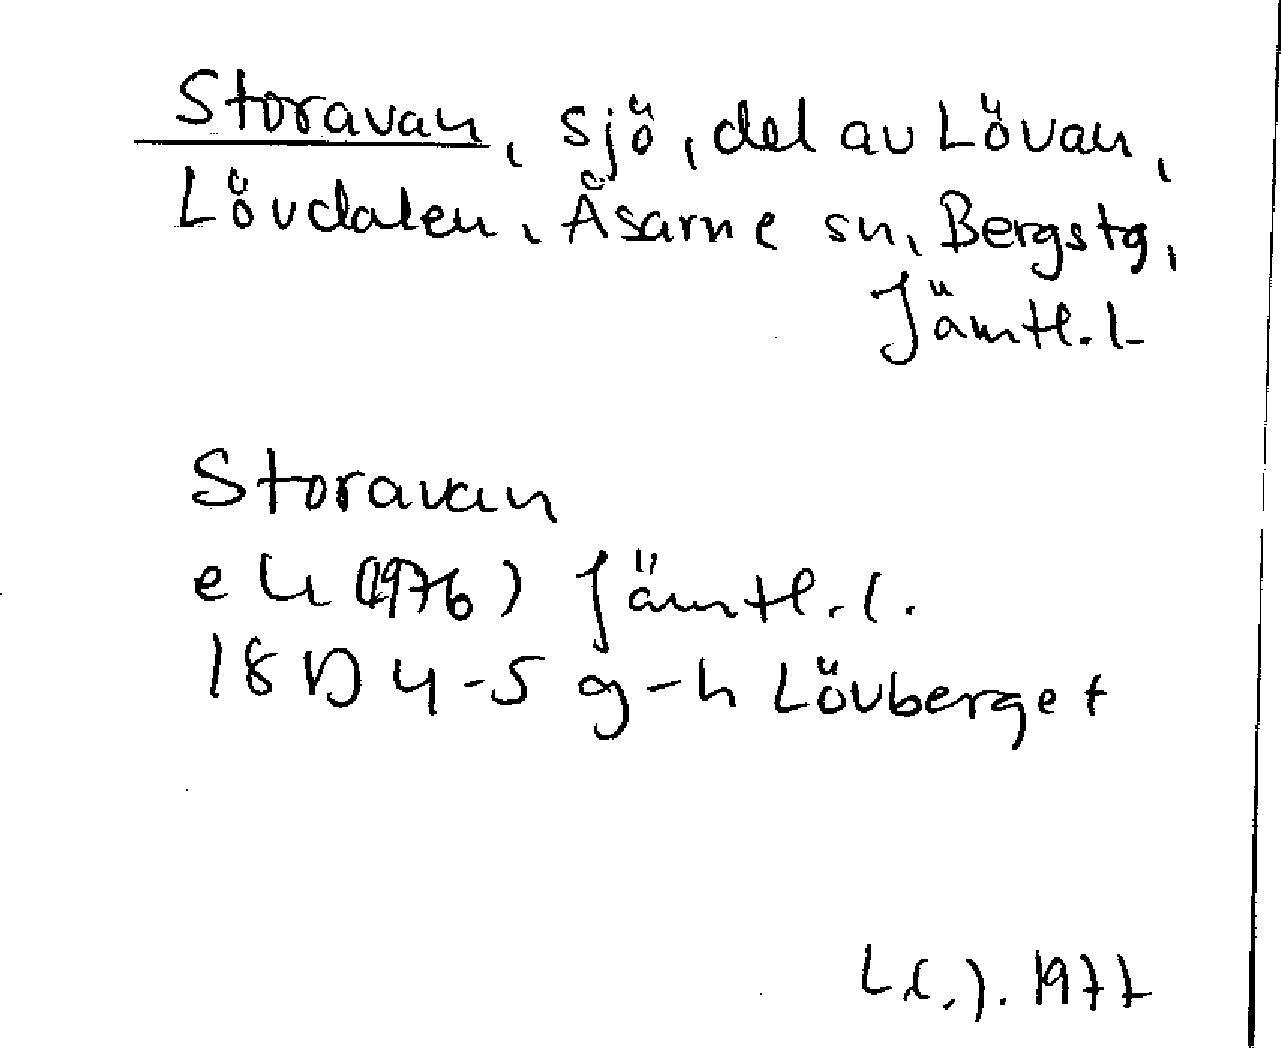 Storavan, sjö, del av Lövan,
Lövdalen, Åsarne sn, Bergs tg,
Jämtl. l
Storavan
ek (1976) Jämtl. l.
18D 4-5 g-h Lövberget
1977